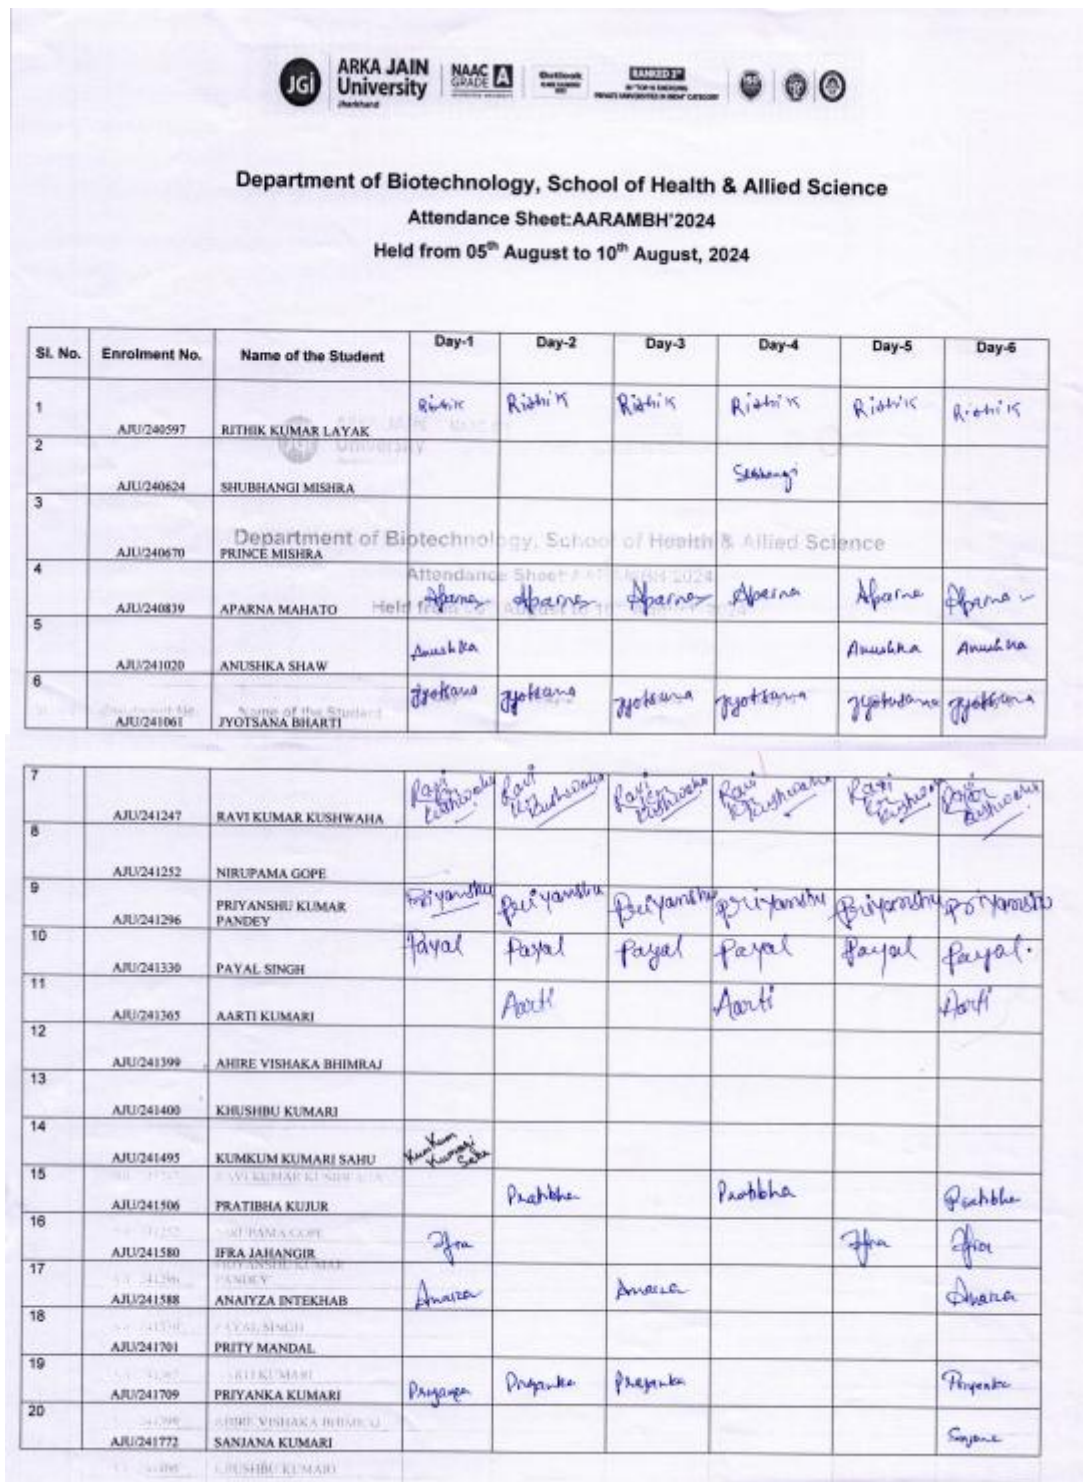 JGI ARKA JAIN University Jharkhand NAAC GRADE A Outlook RANKED 3rd
Department of Biotechnology, School of Health & Allied Science
Attendance Sheet:AARAMBH'2024
Held from 05th August to 10th August, 2024
Sl. No. Enrolment No. Name of the Student Day-1 Day-2 Day-3 Day-4 Day-5 Day-6
1 AJU/240597 RITHIK KUMAR LAYAK Rithik Rithik Rithik Rithik Rithik Rithik
2 AJU/240624 SHUBHANGI MISHRA
3 AJU/240670 PRINCE MISHRA
4 AJU/240839 APARNA MAHATO Aparna Aparna Aparna Aparna Aparna Aparna
5 AJU/241020 ANUSHKA SHAW Anushka Anushka Anushka
6 AJU/241061 JYOTSANA BHARTI Jyotsana Jyotsana Jyotsana Jyotsana Jyotsana Jyotsana
7 AJU/241247 RAVI KUMAR KUSHWAHA Ravi Kushwaha Ravi Kushwaha Ravi Kushwaha Ravi Kushwaha Ravi Kushwaha Kushwaha
8 AJU/241252 NIRUPAMA GOPE
9 AJU/241296 PRIYANSHU KUMAR PANDEY Priyanshu Priyanshu Priyanshu Priyanshu Priyanshu Priyanshu
10 AJU/241330 PAYAL SINGH Payal Payal Payal Payal Payal Payal.
11 AJU/241365 AARTI KUMARI Aarti Aarti Aarti
12 AJU/241399 AHIRE VISHAKA BHIMRAJ
13 AJU/241400 KHUSHBU KUMARI
14 AJU/241495 KUMKUM KUMARI SAHU Kumkum Kumari Sahu
15 AJU/241506 PRATIBHA KUJUR Pratibha Pratibha Pratibha
16 AJU/241580 IFRA JAHANGIR Ifra Ifra Ifra
17 AJU/241588 ANAIYZA INTEKHAB Anaiza Anaiza Anaiza
18 AJU/241701 PRITY MANDAL
19 AJU/241709 PRIYANKA KUMARI Priyanka Priyanka Priyanka Priyanka
20 AJU/241772 SANJANA KUMARI Sanjana